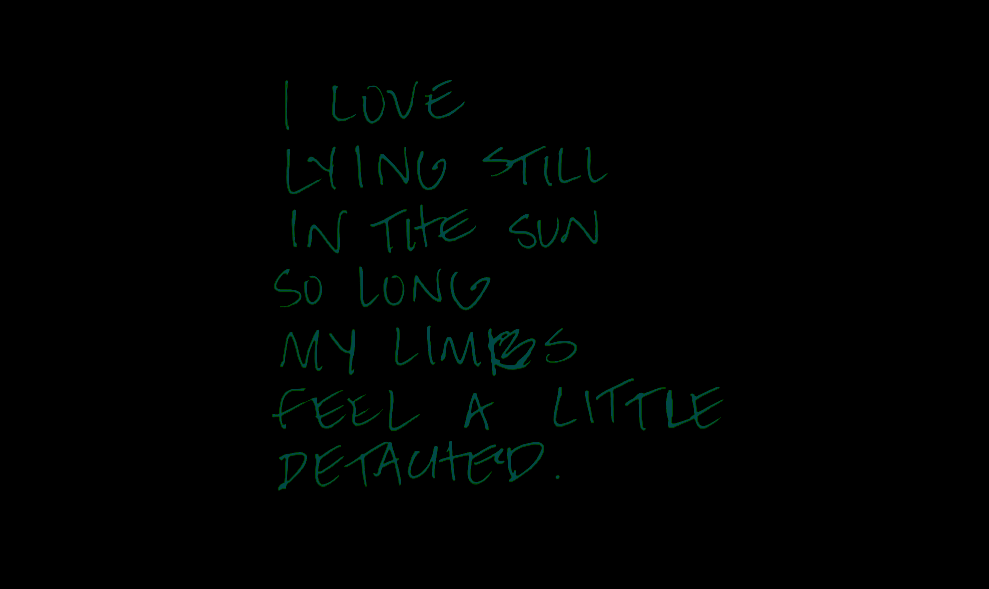 I LOVE
LYING STILL
IN THE SUN
SO LONG
MY LIMBS
FEEL A LITTLE
DETACHED.